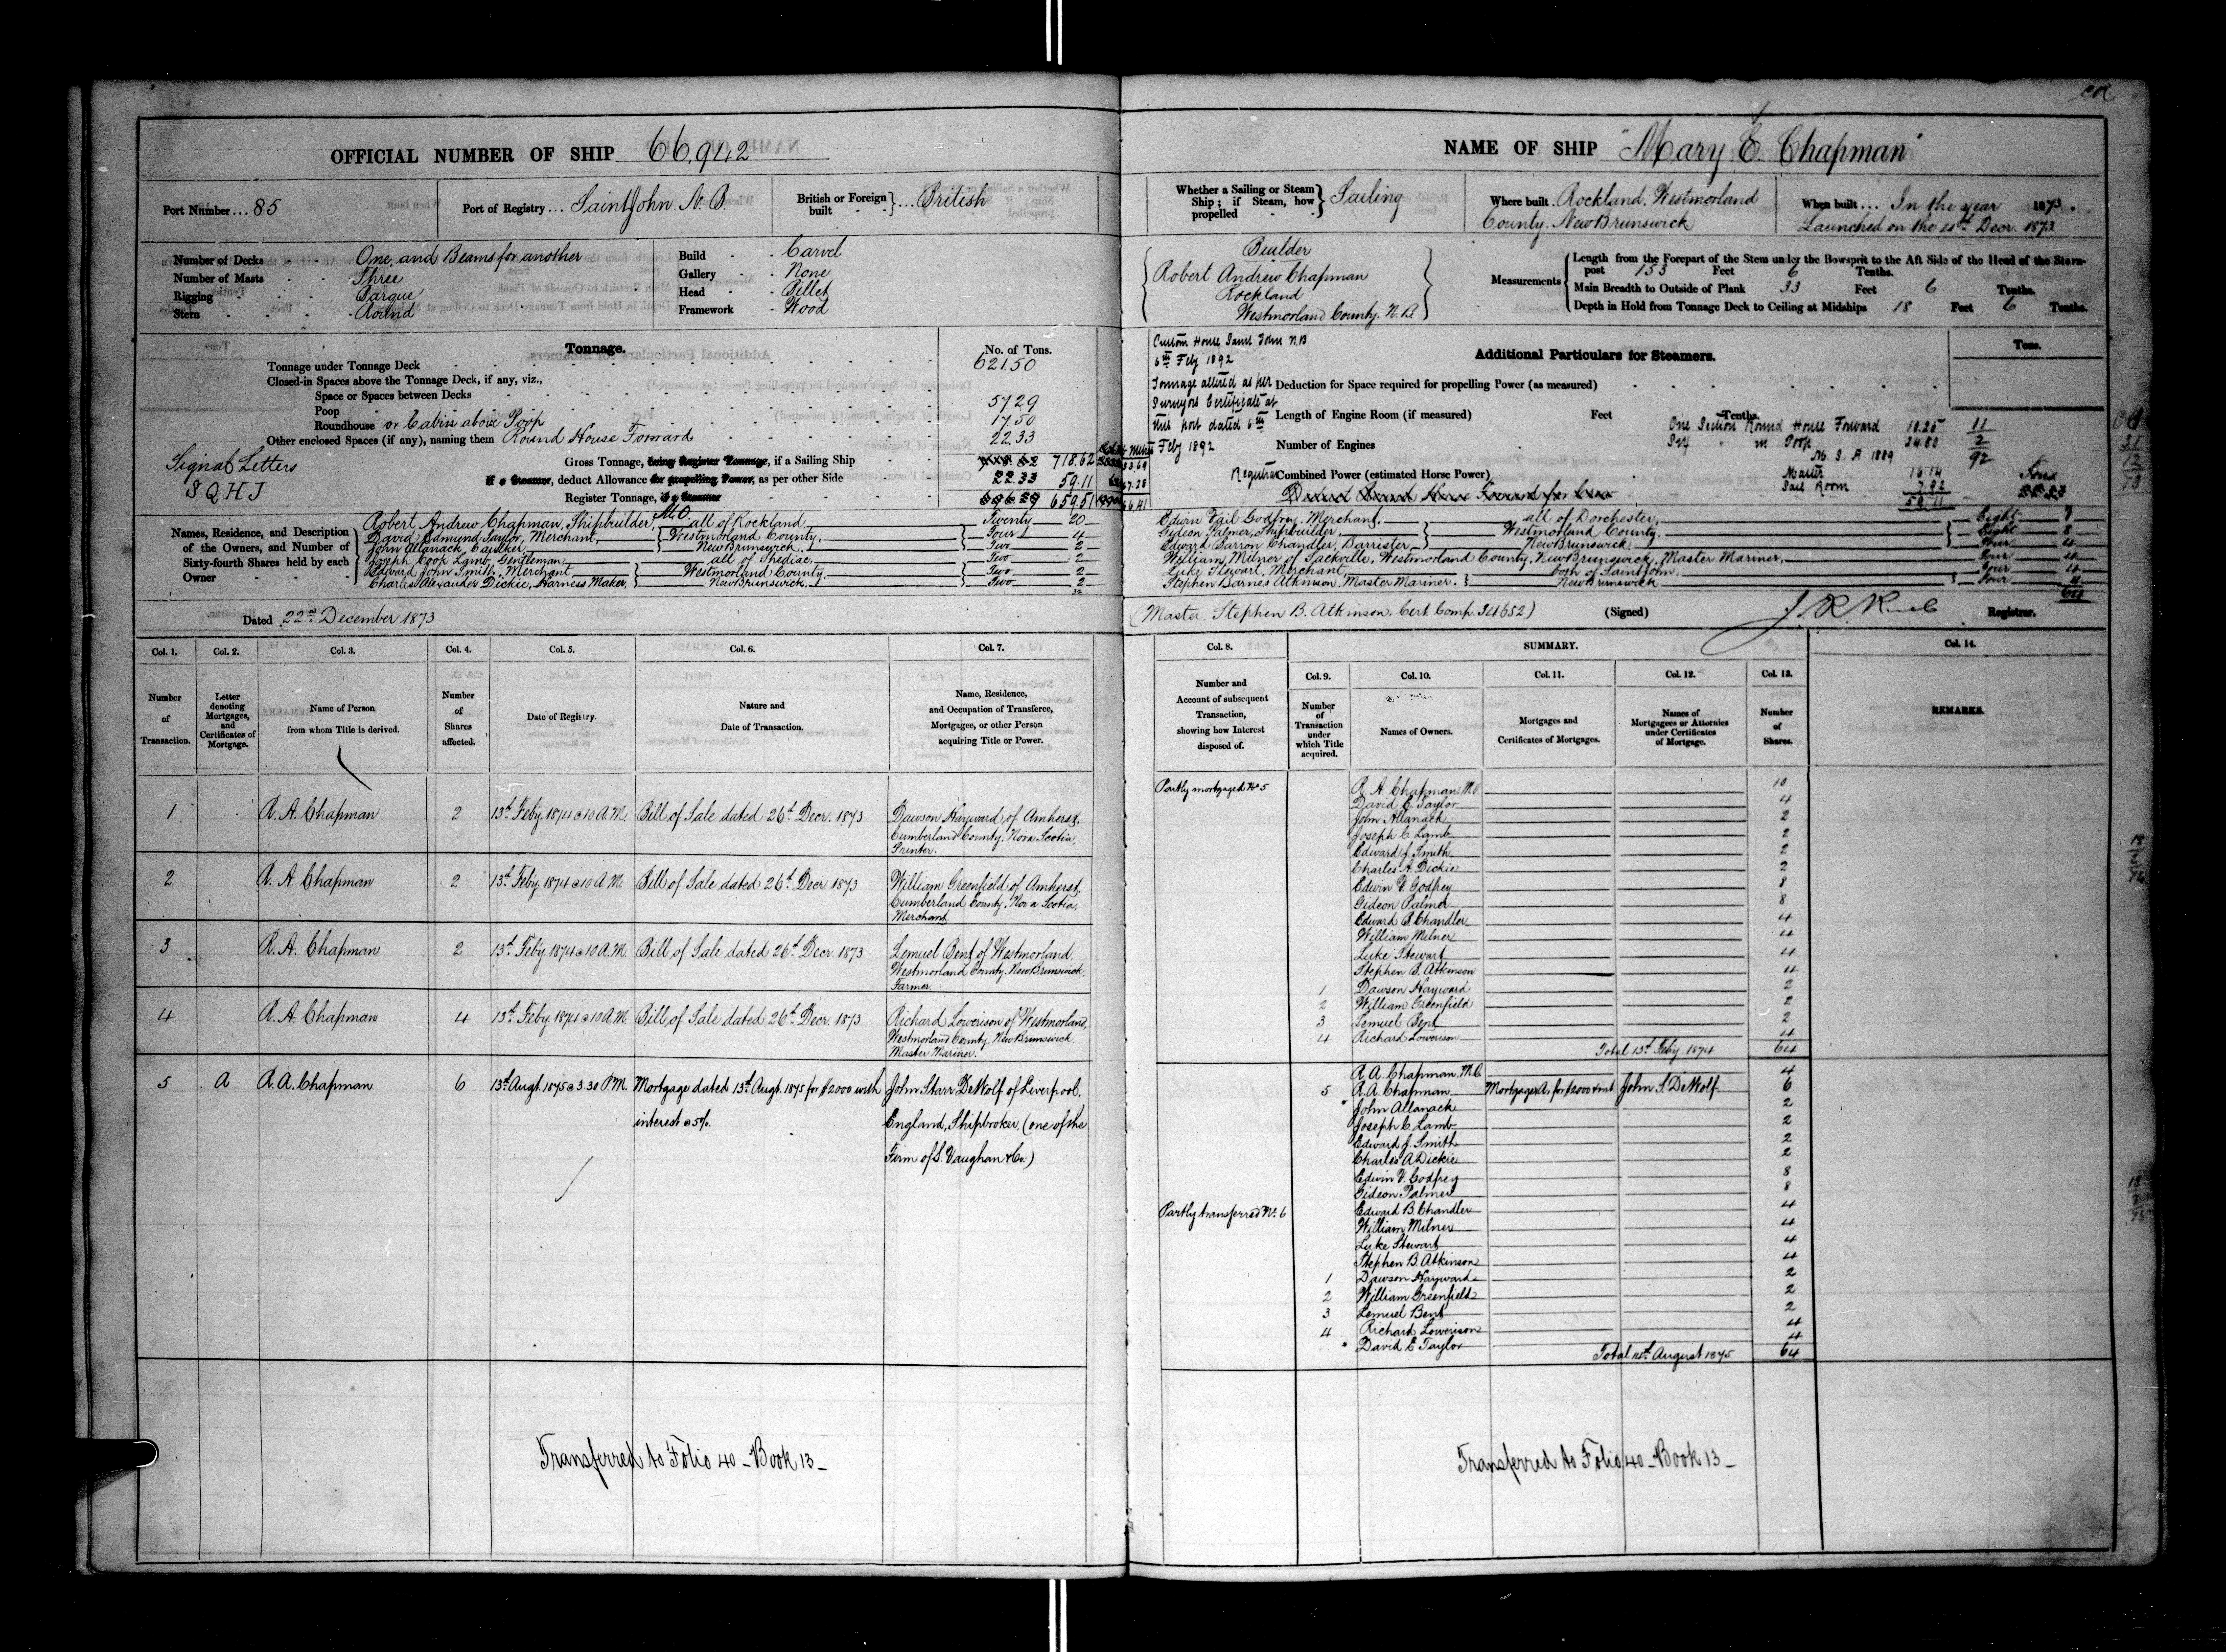 OFFICIAL NUMBER OF SHIP 66,942
Port Number ... 85
Port of Registry ... Saint John N.B.
British or Foreign built } ... British
Number of Decks One, and Beams for another
Number of Masts Three
Rigging Barque
Stern Round
Build Carvel
Gallery None
Head Billet
Framework Wood
Tonnage. No. of Tons.
Tonnage under Tonnage Deck 621.50
Closed-in Spaces above the Tonnage Deck, if any, viz.,
Space or Spaces between Decks
Poop 57.29
Roundhouse or Cabin above Poop 17.50
Other enclosed Spaces (if any), naming them Round House Forward 22.33
Signal Letters
S Q H J
Gross Tonnage, being Register Tonnage, if a Sailing Ship 718.62
If a Steamer, deduct Allowance for propelling Power, as per other Side 22.33 59.11
Register Tonnage, if a Steamer 696.29 659.51
Names, Residence, and Description of the Owners, and Number of Sixty-fourth Shares held by each Owner
Robert Andrew Chapman, Shipbuilder, M.O. all of Rockland Twenty 20
David Edmund Taylor, Merchant, Westmorland County, Four 4
John Allanack, Caulker, New Brunswick. Two 2
Joseph Cook Lamb, Gentleman, all of Shediac Two 2
Edward John Smith, Merchant Westmorland County. Two 2
Charles Alexander Dickie, Harness Maker. New Brunswick. Two 2
Dated 22nd December 1873
Col. 1. Col. 2. Col. 3. Col. 4. Col. 5. Col. 6. Col. 7.
Number of Transaction.
Letter denoting Mortgages, and Certificates of Mortgage.
Name of Person from whom Title is derived.
Number of Shares affected.
Date of Registry.
Nature and Date of Transaction.
Name, Residence, and Occupation of Transferee, Mortgagee, or other Person acquiring Title or Power.
1 R. A. Chapman 2 13th Feby. 1874 @ 10 A.M. Bill of Sale dated 26th Decr. 1873 Dawson Hayward, of Amherst,
Cumberland County. Nova Scotia,
Printer.
2 R. A. Chapman 2 13th Feby 1874 @ 10 A.M. Bill of Sale dated 26th Decr 1873 William Greenfield of Amherst,
Cumberland County. Nova Scotia,
Merchant
3 R. A. Chapman 2 13th Feby 1874 @ 10 A.M. Bill of Sale dated 26th Decr. 1873 Lemuel Bent of Westmorland
Westmorland County. New Brunswick.
Farmer.
4 R. A. Chapman 4 13th Feby 1874 @ 10 A.M. Bill of Sale dated 26th Decr. 1873 Richard Lowerison of Westmorland,
Westmorland County. New Brunswick.
Master Mariner.
5 A R. A. Chapman 6 13th Augt. 1875 @ 3.30 P.M. Mortgage dated 13th Augt. 1875 for $2000 with John Starr DeWolf of Liverpool,
interest @ 5%. England, Shipbroker, (one of the
Firm of S. Vaughan & Co.)
Transferred to Folio 40 - Book 13 -
NAME OF SHIP "Mary E. Chapman"
Whether a Sailing or Steam Ship; if Steam, how propelled } Sailing
Where built Rockland, Westmorland
County. New Brunswick
When built ... In the year 1873.
Launched on the 4th Decr. 1873
Builder
Robert Andrew Chapman
Rockland
Westmorland County. N.B.
Measurements
Length from the Forepart of the Stem under the Bowsprit to the Aft Side of the Head of the Stern-
post 153 Feet 6 Tenths.
Main Breadth to Outside of Plank 33 Feet 6 Tenths.
Depth in Hold from Tonnage Deck to Ceiling at Midships 18 Feet 6 Tenths.
Custom House Saint John N.B
6th Feby 1892
Tonnage altered as per
Surveyors Certificate at
this port dated 6th
Feby 1892
Additional Particulars for Steamers. Tons.
Deduction for Space required for propelling Power (as measured)
Length of Engine Room (if measured) Feet Tenths.
Number of Engines
Combined Power (estimated Horse Power)
One Section Round House Forward 10.25
in Poop 24.80
M. S. A 1889
Master 16.14
Sail Room 7.92
59.11
Edwin Vail Godfrey, Merchant, all of Dorchester, Eight 8
Gideon Palmer, Shipbuilder, Westmorland County. Eight 8
Edward Barron Chandler, Barrister New Brunswick Four 4
William Milner of Sackville, Westmorland County, New Brunswick, Master Mariner, Four 4
Luke Stewart, Merchant both of Saint John, Four 4
Stephen Barnes Atkinson, Master Mariner. New Brunswick Four 4
64
(Master. Stephen B. Atkinson. Cert Comp. 34652) (Signed) Registrar.
Col. 8. SUMMARY. Col. 14.
Col. 9. Col. 10. Col. 11. Col. 12. Col. 13.
Number and Account of subsequent Transaction, showing how Interest disposed of.
Number of Transaction under which Title acquired.
Names of Owners.
Mortgages and Certificates of Mortgages.
Names of Mortgagees or Attornies under Certificates of Mortgage.
Number of Shares.
REMARKS.
Partly mortgaged No 5 R. A. Chapman M.O 10
David E. Taylor 4
John Allanack 2
Joseph C. Lamb 2
Edward J. Smith 2
Charles A. Dickie 2
Edwin V. Godfrey 8
Gideon Palmer 8
Edward B Chandler 4
William Milner 4
Luke Stewart 4
Stephen B. Atkinson 4
1 Dawson Hayward 2
2 William Greenfield 2
3 Lemuel Bent 2
4 Richard Lowerison 4
Total 13th Feby. 1874 64
R. A. Chapman M.O. 4
5 R. A. Chapman Mortgage A, for $2000 & int. John S. DeWolf 6
John Allanack 2
Joseph C. Lamb 2
Edward J. Smith 2
Charles A Dickie 2
Edwin V. Godfrey 8
Gideon Palmer 8
Partly transferred No. 6 Edward B. Chandler 4
William Milner 4
Luke Stewart 4
Stephen B. Atkinson 4
1 Dawson Hayward 2
2 William Greenfield 2
3 Lemuel Bent 2
4 Richard Lowerison 4
David E Taylor 4
Total August 1875 64
Transferred to Folio 40 - Book 13 -